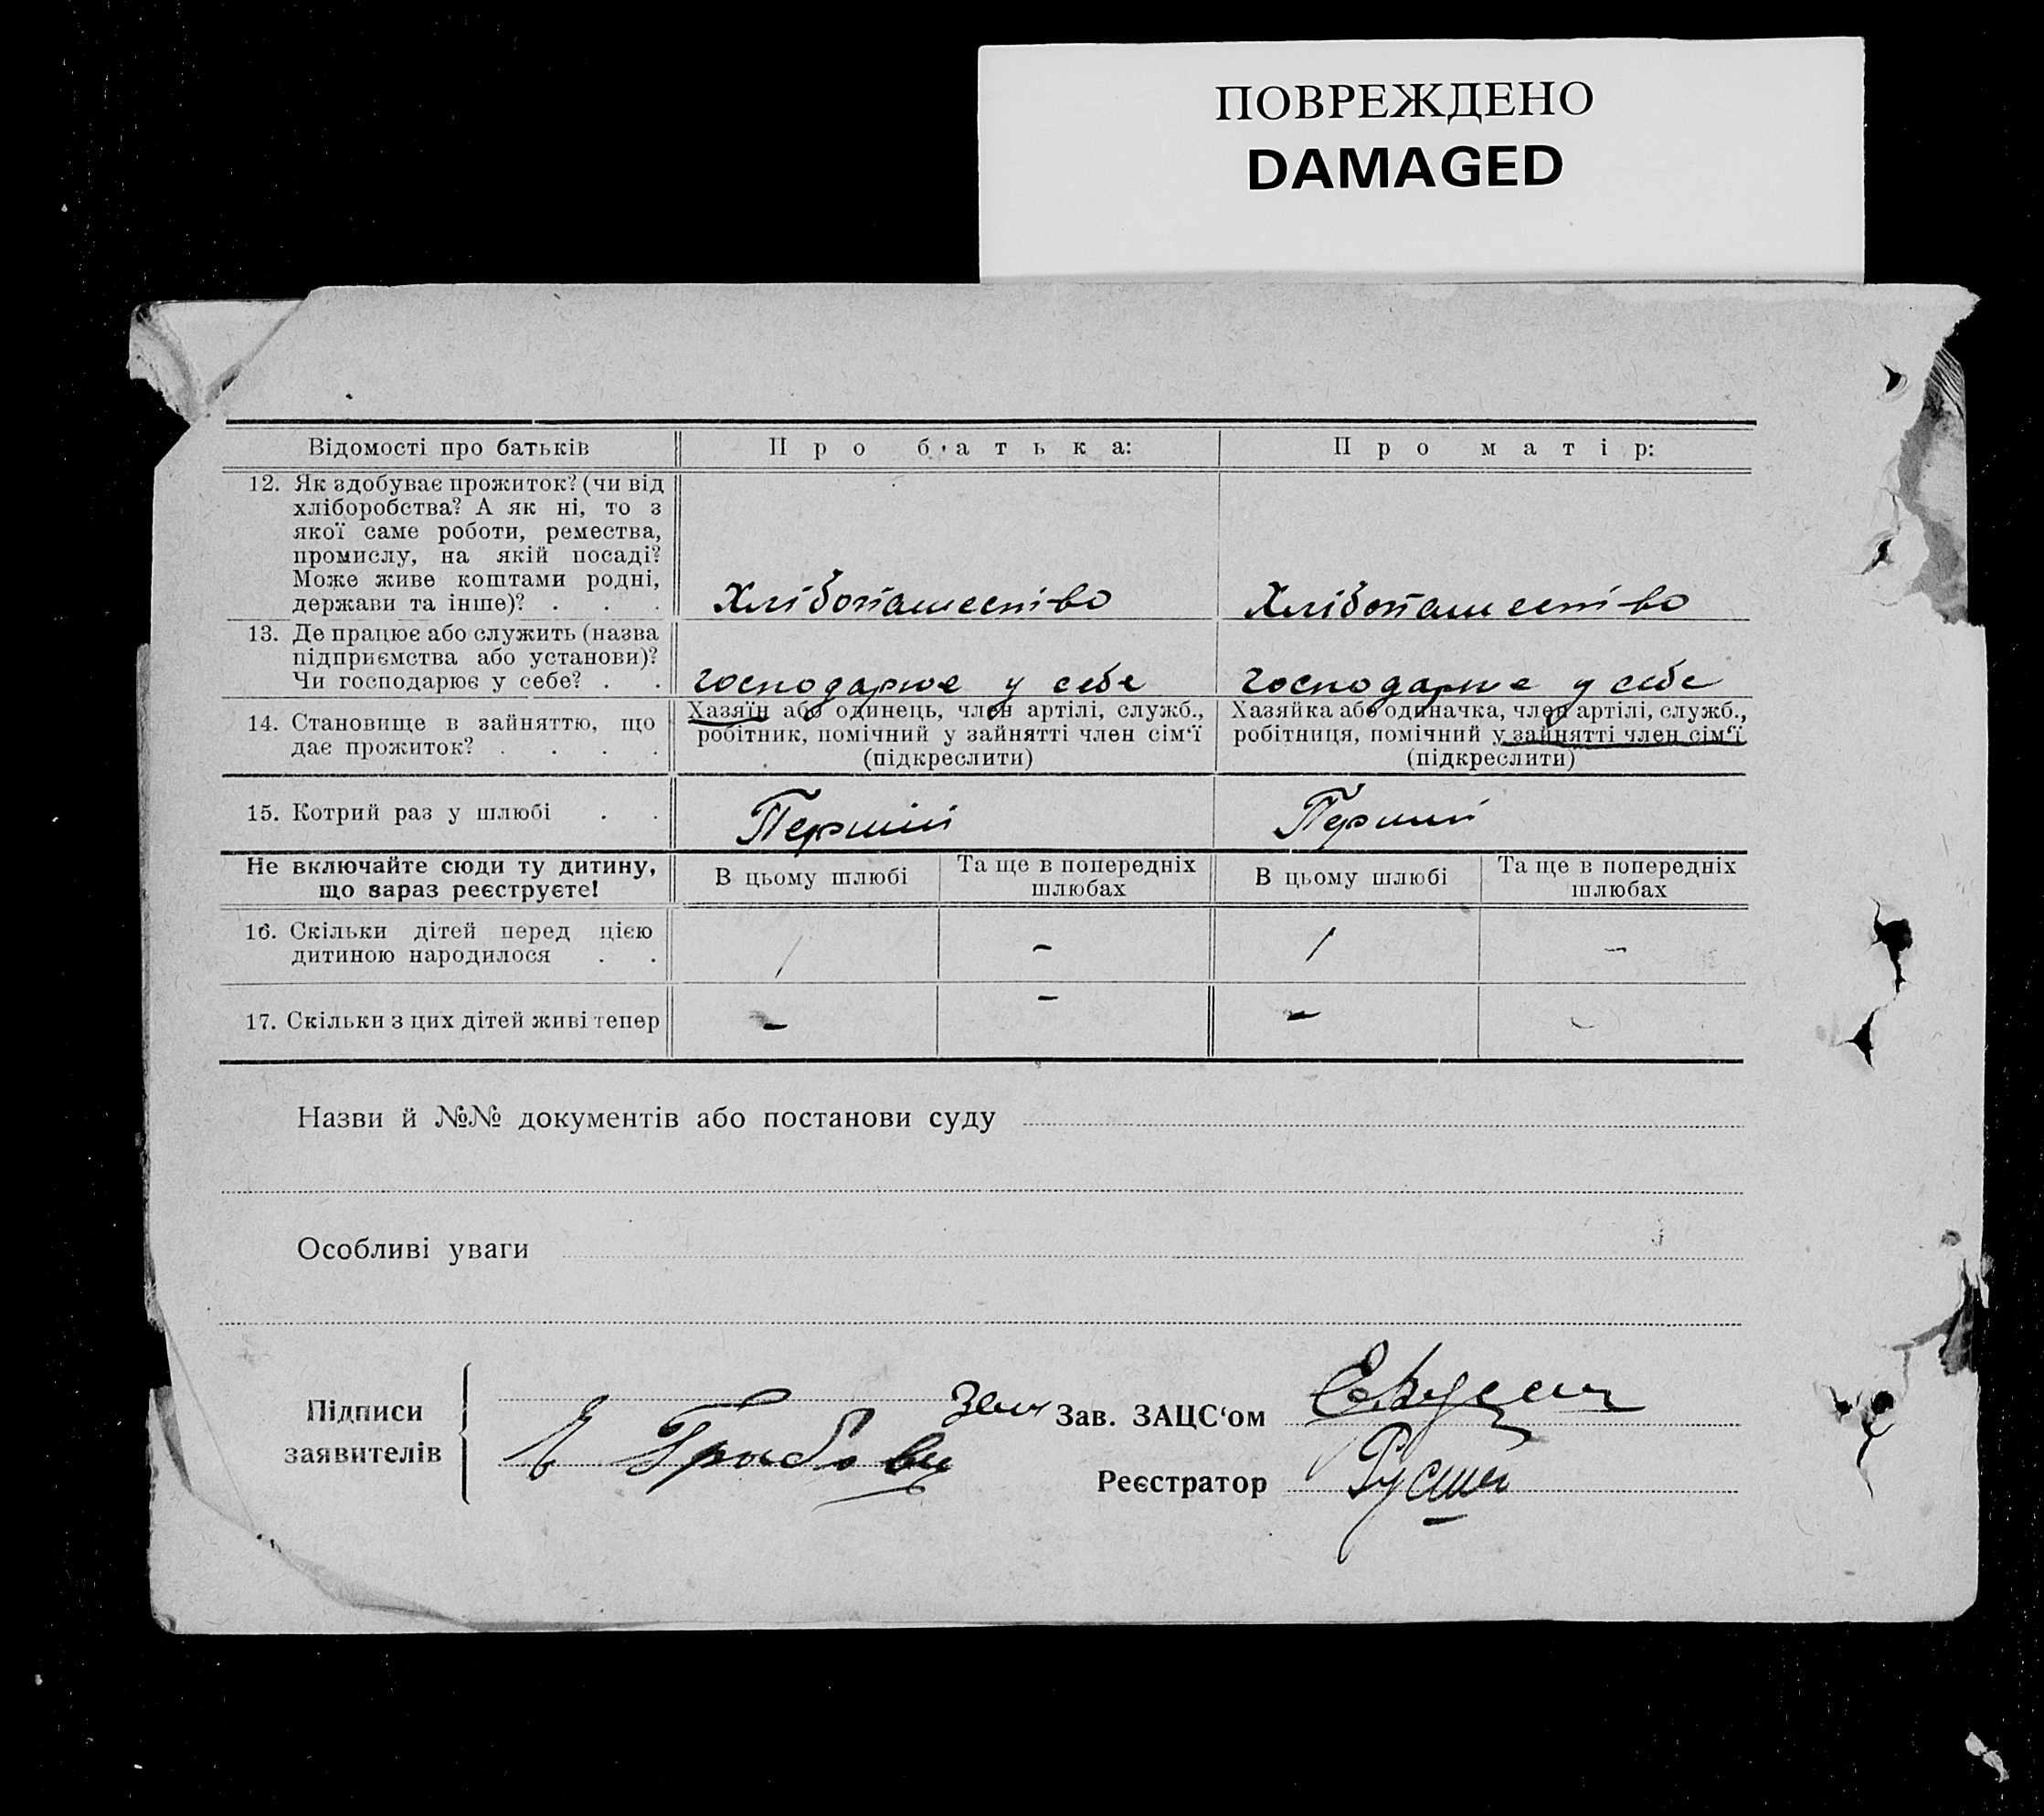 ПОВРЕЖДЕНО
DAMAGED
Відомості про батьків
Про батька:
Про матір:
12. Як здобуває прожиток? (чи від
хліборобства? А як ні, то з
якої саме роботи, ремества,
промислу, на якій посаді?
Може живе коштами родні,
держави та інше)? . . .
Хлібопашество
Хлібопашество
13. Де працює або служить (назва
підприємства або установи)?
Чи господарює у себе? . .
господарює у себе
господарює у себе
14. Становище в зайняттю, що
дає прожиток? . . . .
Хазяїн або одинець, член артілі, служб.,
робітник, помічний у зайнятті член сім‘ї
(підкреслити)
Хазяйка або одиначка, член артілі, служб.,
робітниця, помічний у зайнятті член сім‘ї
(підкреслити)
15. Котрий раз у шлюбі . .
Перший
Перший
Не включайте сюди ту дитину,
що зараз реєструєте!
В цьому шлюбі
Та ще в попередніх
шлюбах
В цьому шлюбі
Та ще в попередніх
шлюбах
16. Скільки дітей перед цією
дитиною народилося . .
1
-
1
-
17. Скільки з цих дітей живі тепер
-
-
-
-
Назви й №№ документів або постанови суду
Особливі уваги
Підписи
заявителів
Зав. ЗАЦС‘ом
Реєстратор